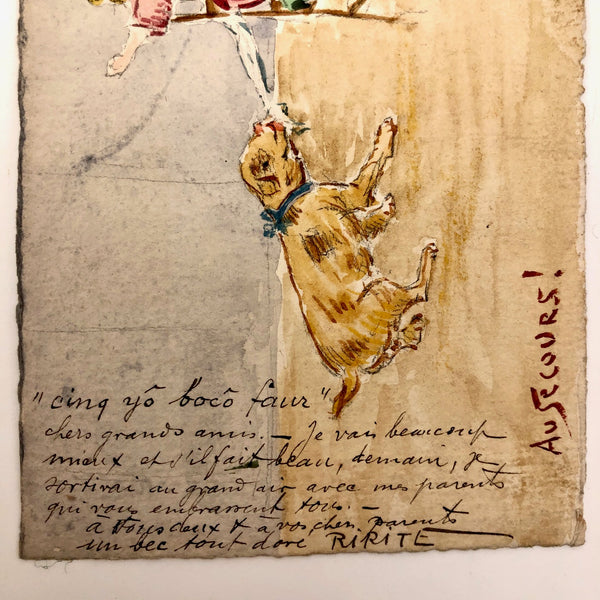 "cinq yô bocô faur"
chers grands amis. — Je vais beaucoup
mieux et s'il fait beau, demain, je
sortirai au grand air avec mes parents
qui vous embrassent tous. —
à vous deux & à vos chers parents
un bec tout doré RIRITE
AU SECOURS!